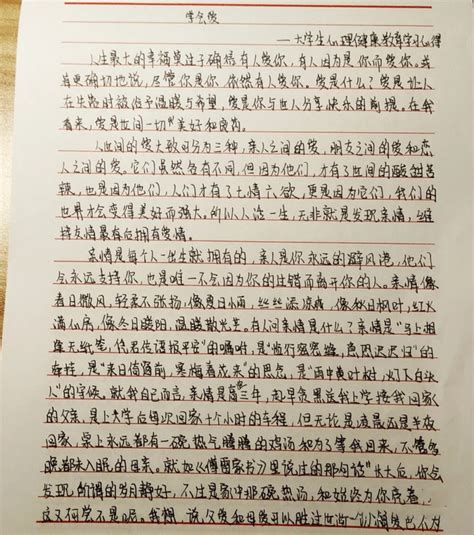 学会爱
——大学生心理健康教育学习心得
人生最大的幸福莫过于确信有人爱你，有人因为是你而爱你。或
者更确切地说，尽管你是你，依然有人爱你。爱是什么？爱是让人
在生活时被给予温暖与希望，爱是你与世人分享快乐的前提。在我
看来，爱是世间一切美好和良药。
人世间的爱大致可分为三种，亲人之间的爱，朋友之间的爱和恋
人之间的爱。它们虽然各有不同，但因为他们，才有了世间的酸甜苦
辣，也是因为他们，人们才有了七情六欲，更是因为它们，我们的
世界才会变得美好而强大。所以人这一生，无非就是发现亲情，维
持友情最有后拥有爱情。
亲情是每个人一出生就拥有的，亲人是你永远的避风港，他们
会永远支持你，也是唯一不会因为你的过错而离开你的人。亲情像
春日微风，轻柔不张扬，像夏日小雨，丝丝添凉爽，像秋日枫叶，红火
满心房，像冬日暖阳，温暖散光芒。有人问亲情是什么？亲情是“马上相
逢无纸笔，凭君传语报平安”的嘱咐，是“临行密密缝，意恐迟迟归”的
牵挂，是“来日绮窗前，寒梅着花未”的思念，是“雨中黄叶树，灯下白头
人”的守候。就我自己而言，亲情是高三年，起早贪黑送我上学接我回家
的父亲，是上大学后每次回家十个小时的车程，但无论是凌晨还是半夜
回家，桌上永远都有一碗热气腾腾的鸡汤和为了等我回来，不管多
晚都未入眠的母亲。就如《傅雷家书》里说过的那句话“长大后，你会
发现所谓的岁月静好，不过是家中那碗热汤，和始终为你
这又何尝不是呢。我想，说父爱和母爱可以胜过世间一切